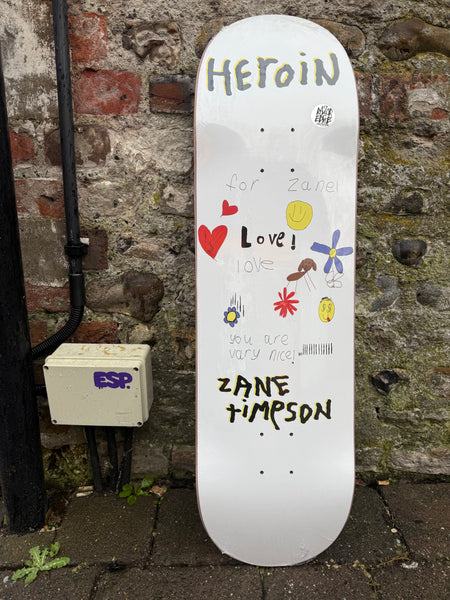 HEROIN
for zane!
Love!
love
you are
vary nice!
ZANE
tIMPSON
ESP